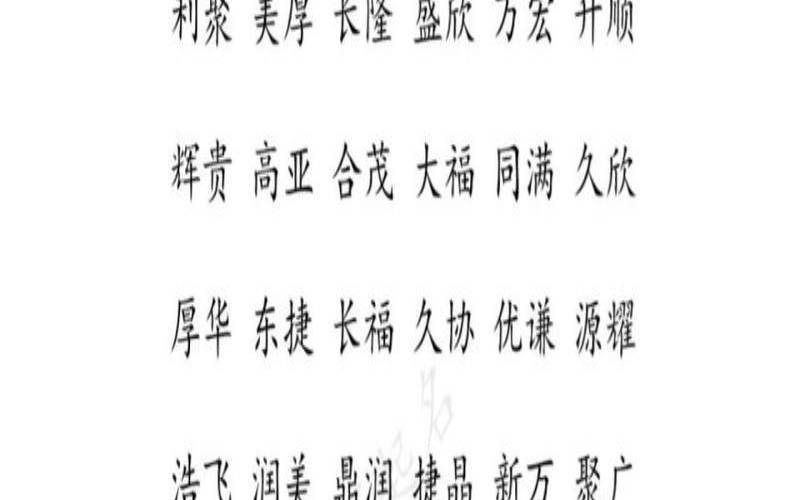 利聚 美厚 长隆 盛欣 万宏 升顺
辉贵 高亚 合茂 大福 同满 久欣
厚华 东捷 长福 久协 优谦 源耀
浩飞 润美 鼎润 捷晶 新万 聚广